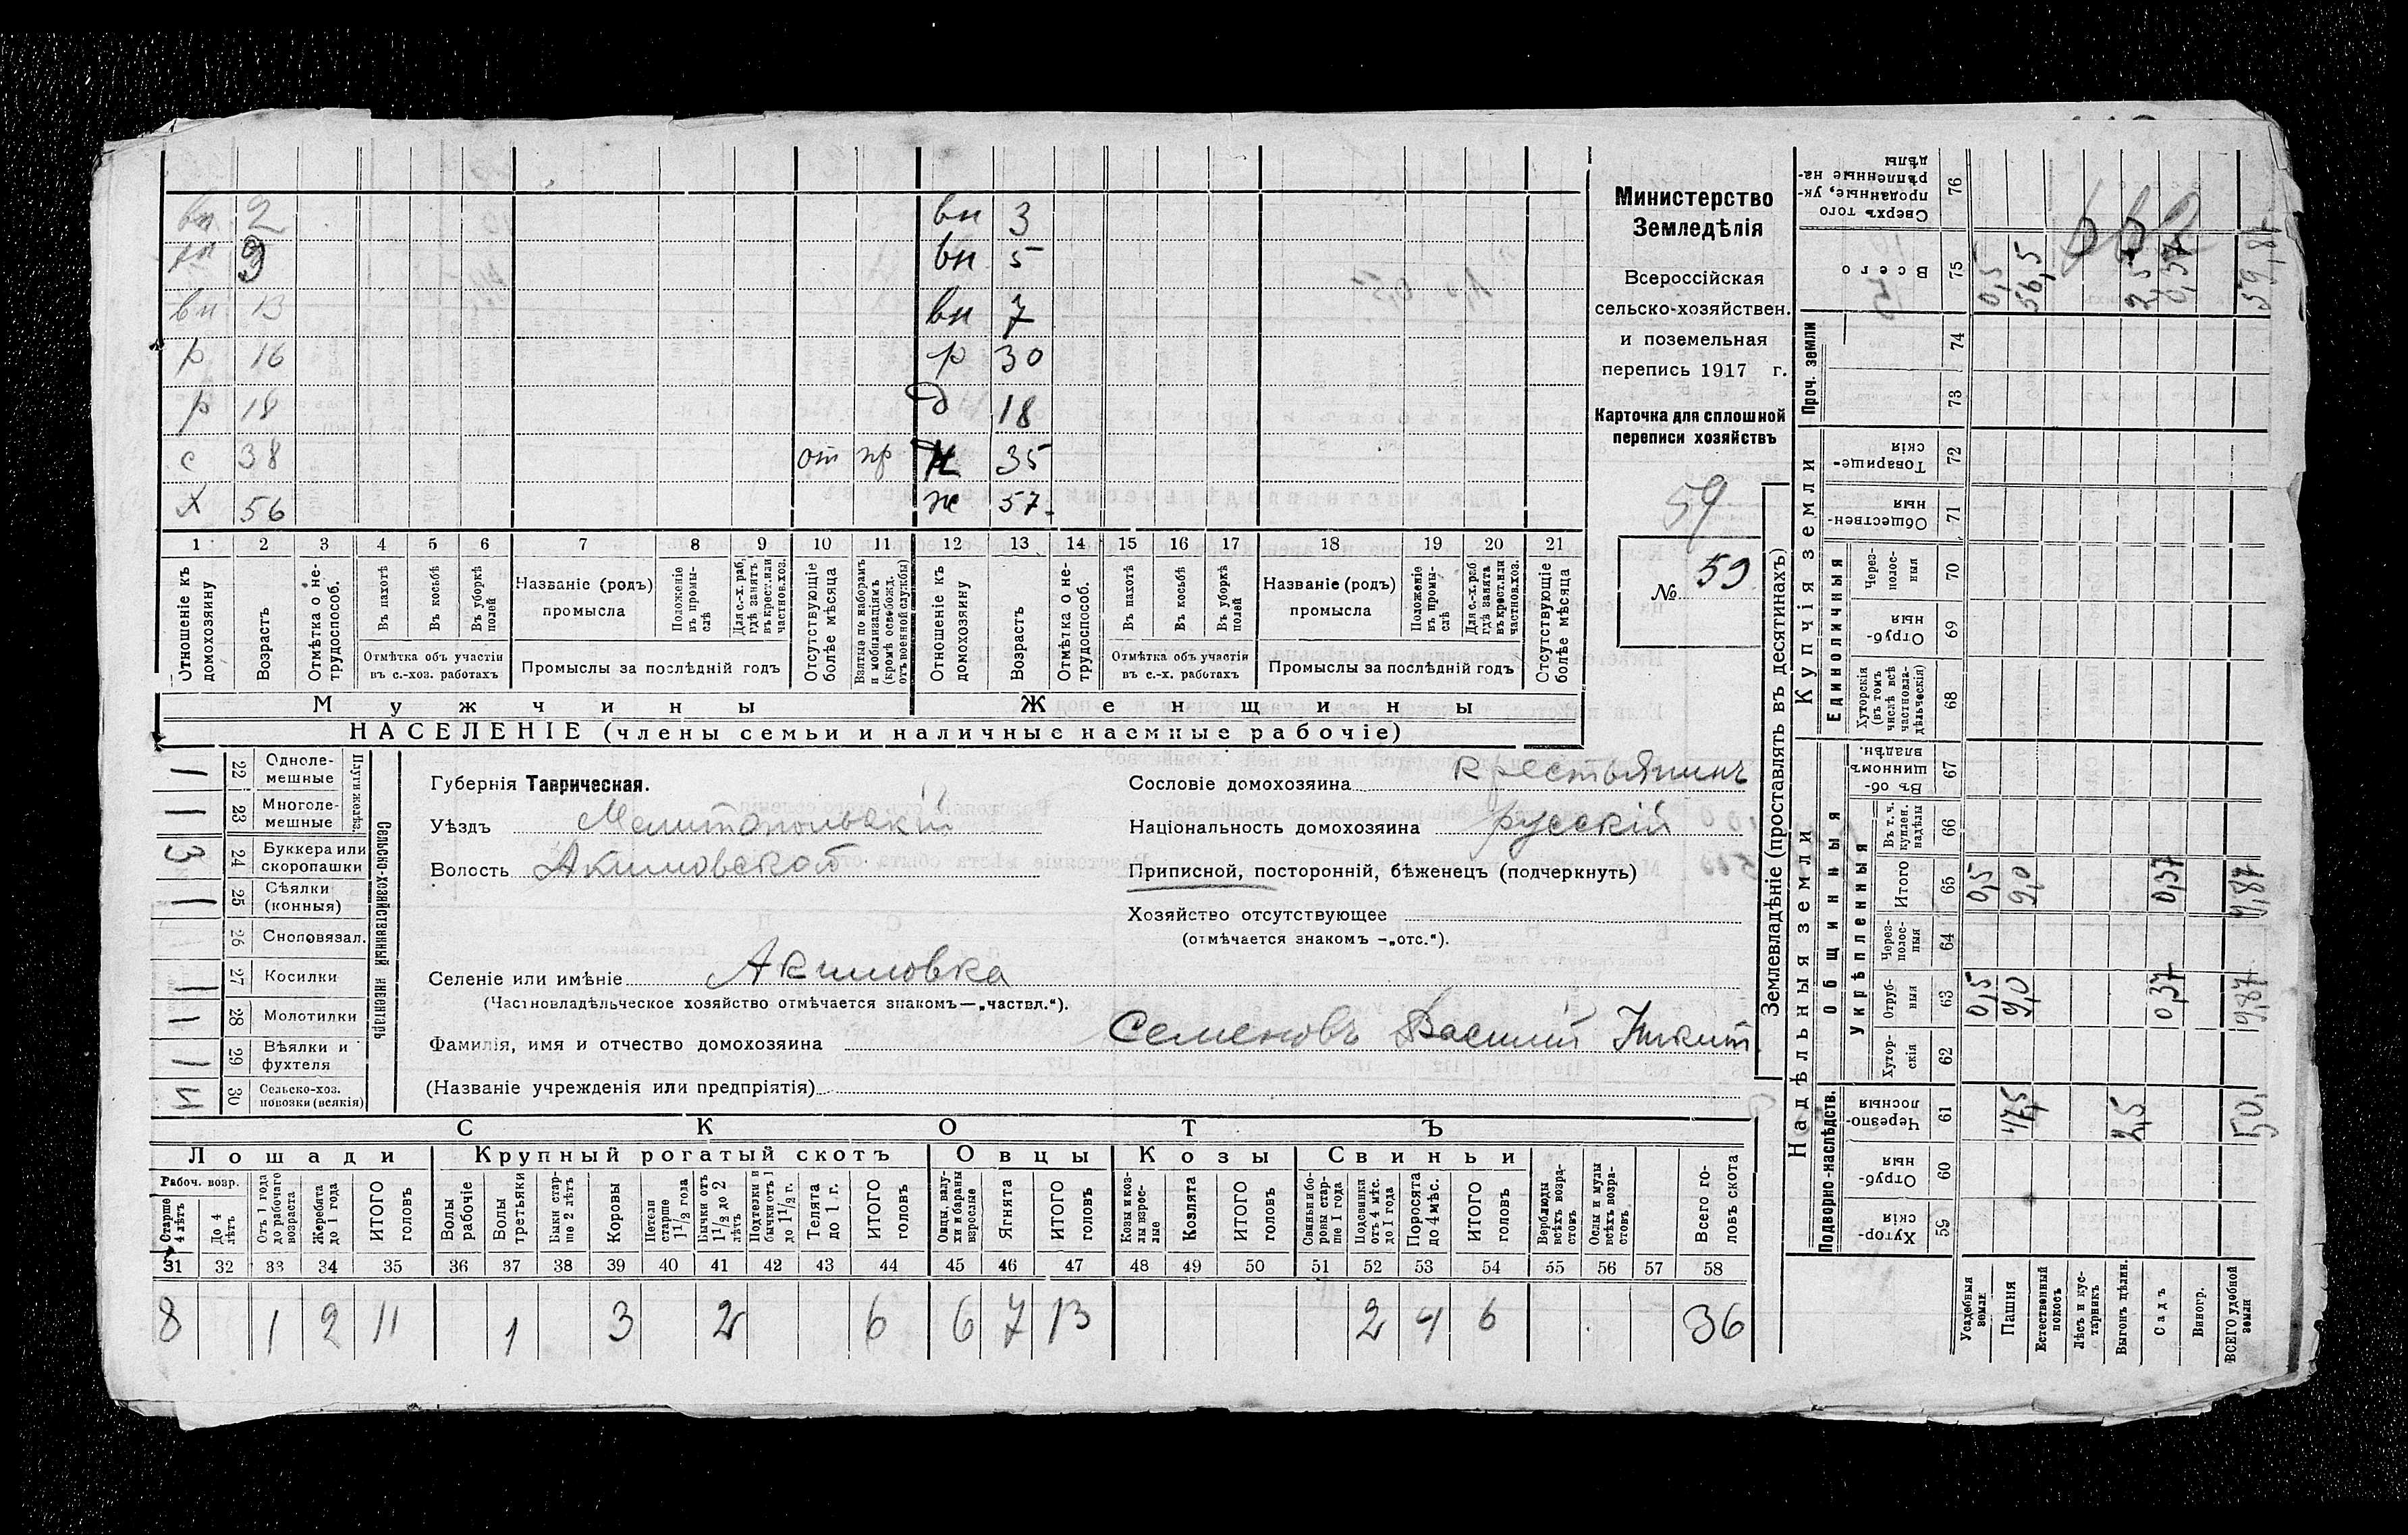 вн 2 вн 3
вн 3 вн 5
вн 13 вн 7
р 16 р 30
р 18 д 18
с 38 от пр н 35
х 56 ж 57
1 2 3 4 5 6 7 8 9 10 11 12 13 14 15 16 17 18 19 20 21
Отношеніе къ домохозяину
Возрастъ
Отмѣтка о не-трудоспособ.
Въ пахотѣ
Въ косьбѣ
Въ уборкѣ полей
Отмѣтка объ участіи
въ с.-хоз. работахъ
Названіе (родъ)
промысла
Положеніе въ промы-слѣ
Для с.-х. раб. гдѣ занятъ въ крест. или частнов. хоз.
Промыслы за послѣдній годъ
Отсутствующіе болѣе мѣсяца
Взятые по наборамъ и мобилизаціямъ (кромѣ освобожд. отъ военной службы)
Отношеніе къ домохозяину
Возрастъ
Отмѣтка о не-трудоспособ.
Въ пахотѣ
Въ косьбѣ
Въ уборкѣ полей
Отмѣтка объ участіи
въ с.-х. работахъ
Названіе (родъ)
промысла
Положеніе въ промы-слѣ
Для с.-х. раб. гдѣ занята въ крест. или частнов. хоз.
Промыслы за послѣдній годъ
Отсутствующіе болѣе мѣсяца
Мужчины Женщины
НАСЕЛЕНІЕ (члены семьи и наличные наемные рабочіе)
Министерство
Земледѣлія
Всероссійская
сельско-хозяйствен.
и поземельная
перепись 1917 г.
Карточка для сплошной
переписи хозяйствъ
59
№ 59
Сельско-хозяйственный инвентарь
Плуги желѣз.
22 Однолемешные 1
23 Многолемешные 1
24 Буккера или скоропашки 3
25 Сѣялки (конныя) 1
26 Сноповязал.
27 Косилки 1
28 Молотилки 1
29 Вѣялки и фухтеля 1
30 Сельско-хоз. повозки (всякія)
Губернія Таврическая.
Уѣздъ Мелитопольскій
Волость Акимовской
Селеніе или имѣніе Акимовка
(Частновладѣльческое хозяйство отмѣчается знакомъ—„частвл.“).
Фамилія, имя и отчество домохозяина Семеновъ Василій Никит
(Названіе учрежденія или предпріятія)
Сословіе домохозяина крестьянинъ
Національность домохозяина русскій
Приписной, посторонній, бѣженецъ (подчеркнуть)
Хозяйство отсутствующее
(отмѣчается знакомъ —„отс.“).
СКОТЪ
Лошади Крупный рогатый скотъ Овцы Козы Свиньи
Рабоч. возр.
Старше 4 лѣтъ
До 4 лѣтъ
Отъ 1 года до рабочаго возраста
Жеребята до 1 года
ИТОГО головъ
Волы рабочіе
Волы третьяки
Быки старше 2 лѣтъ
Коровы
Нетели старше 1 1/2 года
Бычки отъ 1 1/2 до 2 лѣтъ
Подтелки и бычки отъ 1 до 1 1/2 г.
Телята до 1 г.
ИТОГО головъ
Овцы, валухи и бараны взрослые
Ягнята
ИТОГО головъ
Козы и козлы взрослые
Козлята
ИТОГО головъ
Свиньи и боровы старше 1 года
Подсвинки отъ 4 мѣс. до 1 года
Поросята до 4 мѣс.
ИТОГО головъ
Верблюды всѣхъ возрастовъ
Ослы и мулы всѣхъ возрастовъ
Всего головъ скота
31 32 33 34 35 36 37 38 39 40 41 42 43 44 45 46 47 48 49 50 51 52 53 54 55 56 57 58
8 1 2 11 1 3 2 6 6 7 13 2 4 6 36
Землевладѣніе (проставлять въ десятинахъ)
Надѣльныя земли
Купчія земли
Проч. земли
Общинныя
Укрѣпленныя
Подворно-наслѣдств.
Единоличныя
Сверхъ того проданные, укрѣпленные надѣлы 76
Всего 75 0,5 56,5 2,5 0,37 59,87
74
73
Товарищескія 72
Общественныя 71
Черезполосныя 70
Отрубныя 69
Хуторскія (въ томъ числѣ всѣ частновладѣльческія) 68
Въ общинномъ владѣн. 67
Въ т. ч. куплен. надѣлы 66
Итого 65 0,5 9,0 0,37 9,87
Черезполосныя 64
Отрубныя 63 0,5 9,0 0,37 9,87
Хуторскія 62
Черезполосныя 61 47,5 2,5 50,
Отрубныя 60
Хуторскія 59
Усадебныя земли
Пашня
Естественный покосъ
Лѣсъ и кустарникъ
Выгонъ цѣлин.
Садъ
Виногр.
ВСЕГО удобной земли